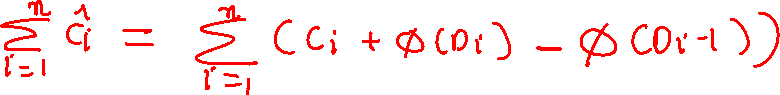 \sum_{i=1}^{n} \hat{c}_i = \sum_{i=1}^{n} (c_i + \phi(D_i) - \phi(D_{i-1}))